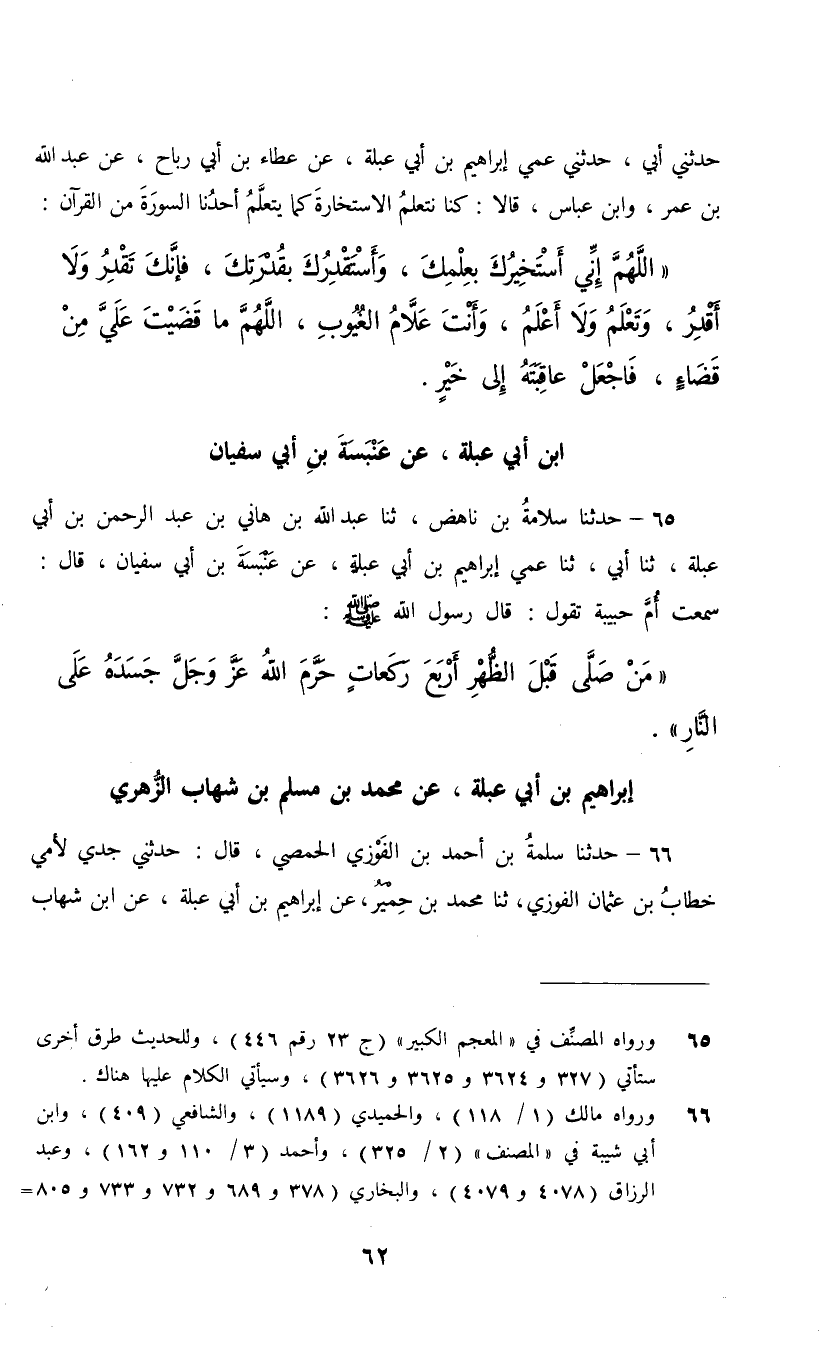 حدثني أبي ، حدثني عمي إبراهيم بن أبي عبلة ، عن عطاء بن أبي رباح ، عن عبد الله
بن عمر ، وابن عباس ، قالا : كنا نتعلمُ الاستخارةَ كما يتعلَّمُ أحدُنا السورَةَ من القرآن :
« اللَّهُمَّ إِنِّي أَسْتَخِيرُكَ بعِلْمِكَ ، وَأَسْتَقْدِرُكَ بقُدْرَتِكَ ، فإنَّكَ تَقْدِرُ وَلَا
أَقْدِرُ ، وَتَعْلَمُ وَلَا أَعْلَمُ ، وَأَنْتَ عَلَّامُ الغُيُوبِ ، اللَّهُمَّ ما قَضَيْتَ عَلَيَّ مِنْ
قَضَاءٍ ، فَاجْعَلْ عاقِبَتَهُ إِلى خَيْرٍ .
ابن أبي عبلة ، عن عَنْبَسَةَ بنِ أبي سفيان
٦٥ – حدثنا سلامةُ بن ناهض ، ثنا عبد الله بن هاني بن عبد الرحمن بن أبي
عبلة ، ثنا أبي ، ثنا عمي إبراهيم بن أبي عبلةٍ ، عن عَنْبَسَةَ بن أبي سفيان ، قال :
سمعت أُمَّ حبيبة تقول : قال رسول الله ﷺ :
« مَنْ صَلَّى قَبْلَ الظُّهْرِ أَرْبَعَ رَكَعاتٍ حَرَّمَ اللهُ عَزَّ وَجَلَّ جَسَدَهُ عَلَى
النَّارِ » .
إبراهيم بن أبي عبلة ، عن محمد بن مسلم بن شهاب الزُّهري
٦٦ – حدثنا سلمةُ بن أحمد بن الفَوْزي الحمصي ، قال : حدثني جدي لأمي
خطابُ بن عثمان الفوزي، ثنا محمد بن حِمْيَرُ، عن إبراهيم بن أبي عبلة ، عن ابن شهاب
٦٥ ورواه المصنِّف في « المعجم الكبير » ( ج ٢٣ رقم ٤٤٦ ) ، وللحديث طرق أخرى
ستأتي ( ٣٢٧ و ٣٦٢٤ و ٣٦٢٥ و ٣٦٢٦ ) ، وسيأتي الكلام عليها هناك .
٦٦ ورواه مالك ( ١ / ١١٨ ) ، والحميدي ( ١١٨٩ ) ، والشافعي ( ٤٠٩ ) ، وابن
أبي شيبة في « المصنف » ( ٢ / ٣٢٥ ) ، وأحمد ( ٣ / ١١٠ و ١٦٢ ) ، وعبد
الرزاق ( ٤٠٧٨ و ٤٠٧٩ ) ، والبخاري ( ٣٧٨ و ٦٨٩ و ٧٣٢ و ٧٣٣ و ٨٠٥ =
٦٢